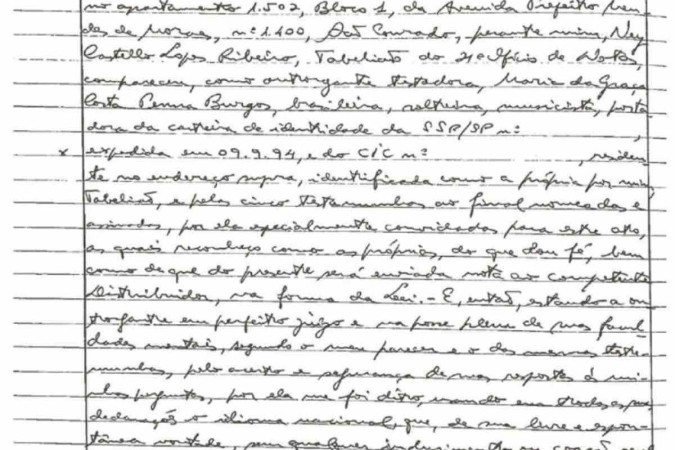 no apartamento 1.502, Bloco 1, da Avenida Prefeito Men-
des de Moraes, nº 1.400, São Conrado, perante mim, Ney
Castello Lopes Ribeiro, Tabelião do 21º Ofício de Notas,
compareceu, como outorgante testadora, Maria da Graça
Costa Penna Burgos, brasileira, solteira, musicista, porta-
dora da carteira de identidade da SSP/SP nº ,
x expedida em 09.9.94, e do CIC nº , residen-
te no endereço supra, identificada como a própria por mim,
Tabelião, e pelas cinco testemunhas ao final nomeadas e
assinadas, por ela especialmente convidadas para este ato,
as quais reconheço como as próprias, do que dou fé, bem
como de que do presente será enviada nota ao competente
Distribuidor, na forma da Lei.- E, então, estando a ou-
torgante em perfeito juízo e na posse plena de suas facul-
dades mentais, segundo o meu parecer e o das mesmas teste-
munhas, pelo acerto e segurança de suas respostas às mi-
nhas perguntas, por ela me foi dito, usando em todas as suas
declarações o idioma nacional, que, de sua livre e espon-
tânea vontade, sem qualquer induzimento ou coação